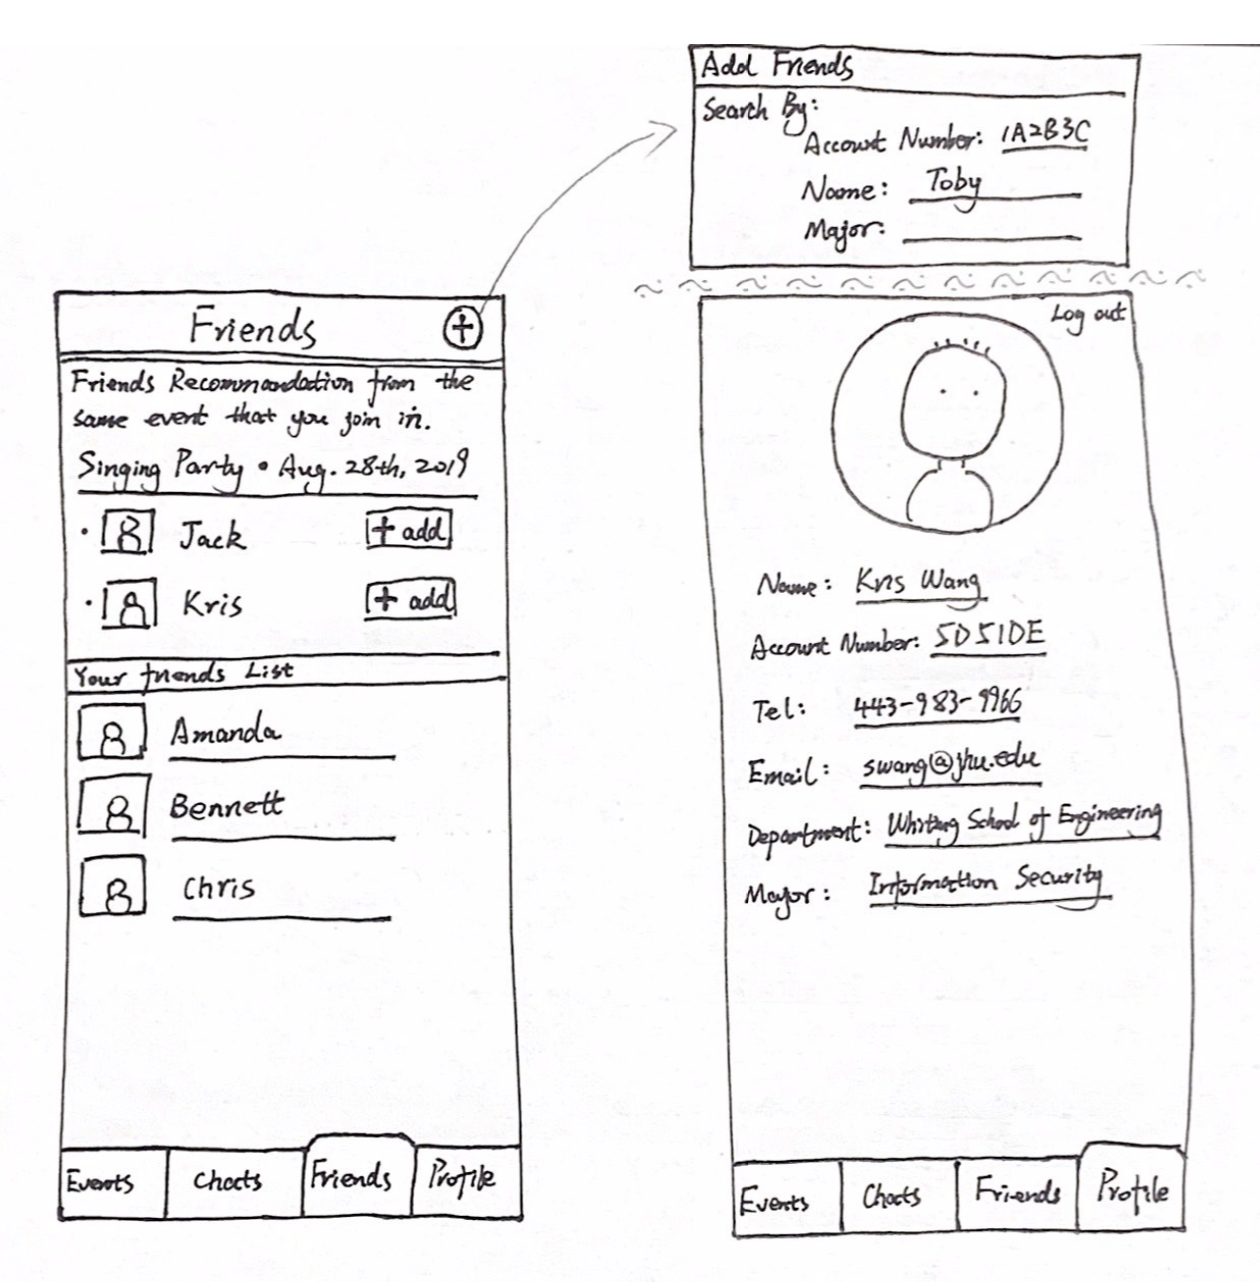 Friends
Friends Recommandation from the
same event that you join in.
Singing Party • Aug. 28th, 2019
Jack + add
Kris + add
Your friends List
Amanda
Bennett
Chris
Events Chats Friends Profile
Add Friends
Search By:
Account Number: 1A2B3C
Name: Toby
Major:
Log out
Name: Kris Wang
Account Number: 5D51DE
Tel: 443-983-9966
Email: swang@jhu.edu
Department: Whiting School of Engineering
Major: Information Security
Events Chats Friends Profile